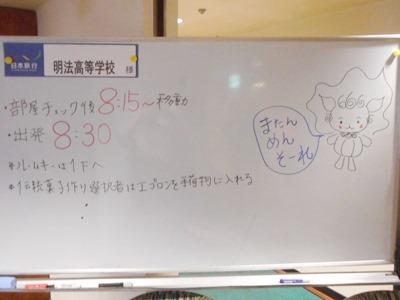 日本旅行
明法高等学校 様
・部屋チェック後 8:15~移動
・出発 8:30
*ルームキーは1Fへ
*伝統菓子作り選択者はエプロンを手荷物に入れる
またん
めん
そーれ